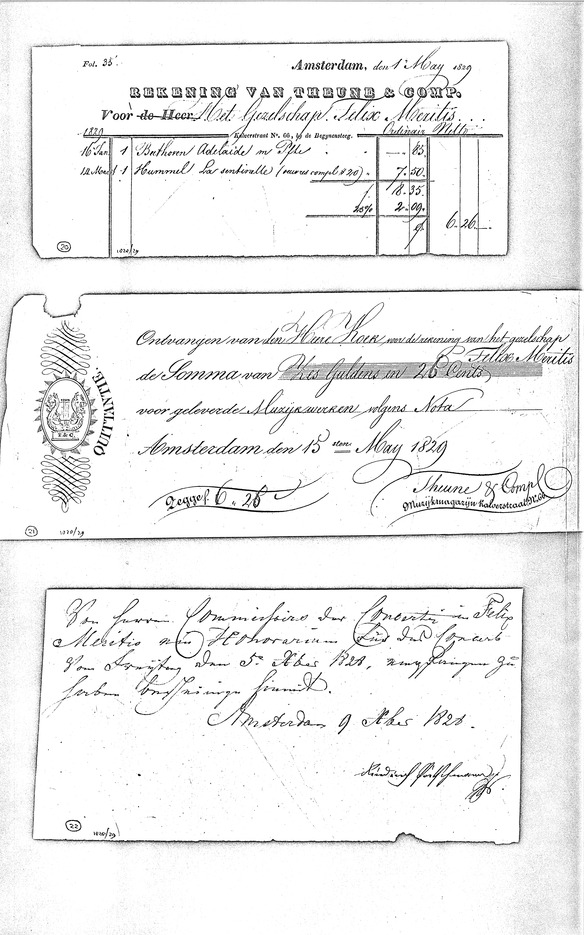 Fol. 35
Amsterdam, den 1 May 1829
REKENING VAN THEUNE & COMP.
Voor de Heer Het Gezelschap Felix Meritis
Kalverstraat No. 66, by de Begynensteeg.
Ordinair Netto
1829
16 Jan 1 Bethoven Adelaide m Pfte - 85.
14 Maart 1 Hummel La sentinelle 7-50.
8-35.
25% 2-09.
6-26-
20
1828/29
Ontvangen van den Heer Koek voor de rekening van het gezelschap
Felix Meritis
de Somma van Zes Guldens en 26 Cents
voor geleverde Muzijkwerken volgens Nota
Amsterdam den 15 den May 1829
QUITTANTIE.
T & C.
Zegge f 6,, 26
Theune & Compe
Muzijkmagazijn Kalverstraat No 66
21
1828/29
Von Herren Commissairs der Concerte in Felix
Meritis mein Honorarium für das Concert
vom Freytag den 5n Xber 1828, empfangen zu
haben bescheinige hiemit.
Amsterdam 9 Xber 1828.
22
1828/29